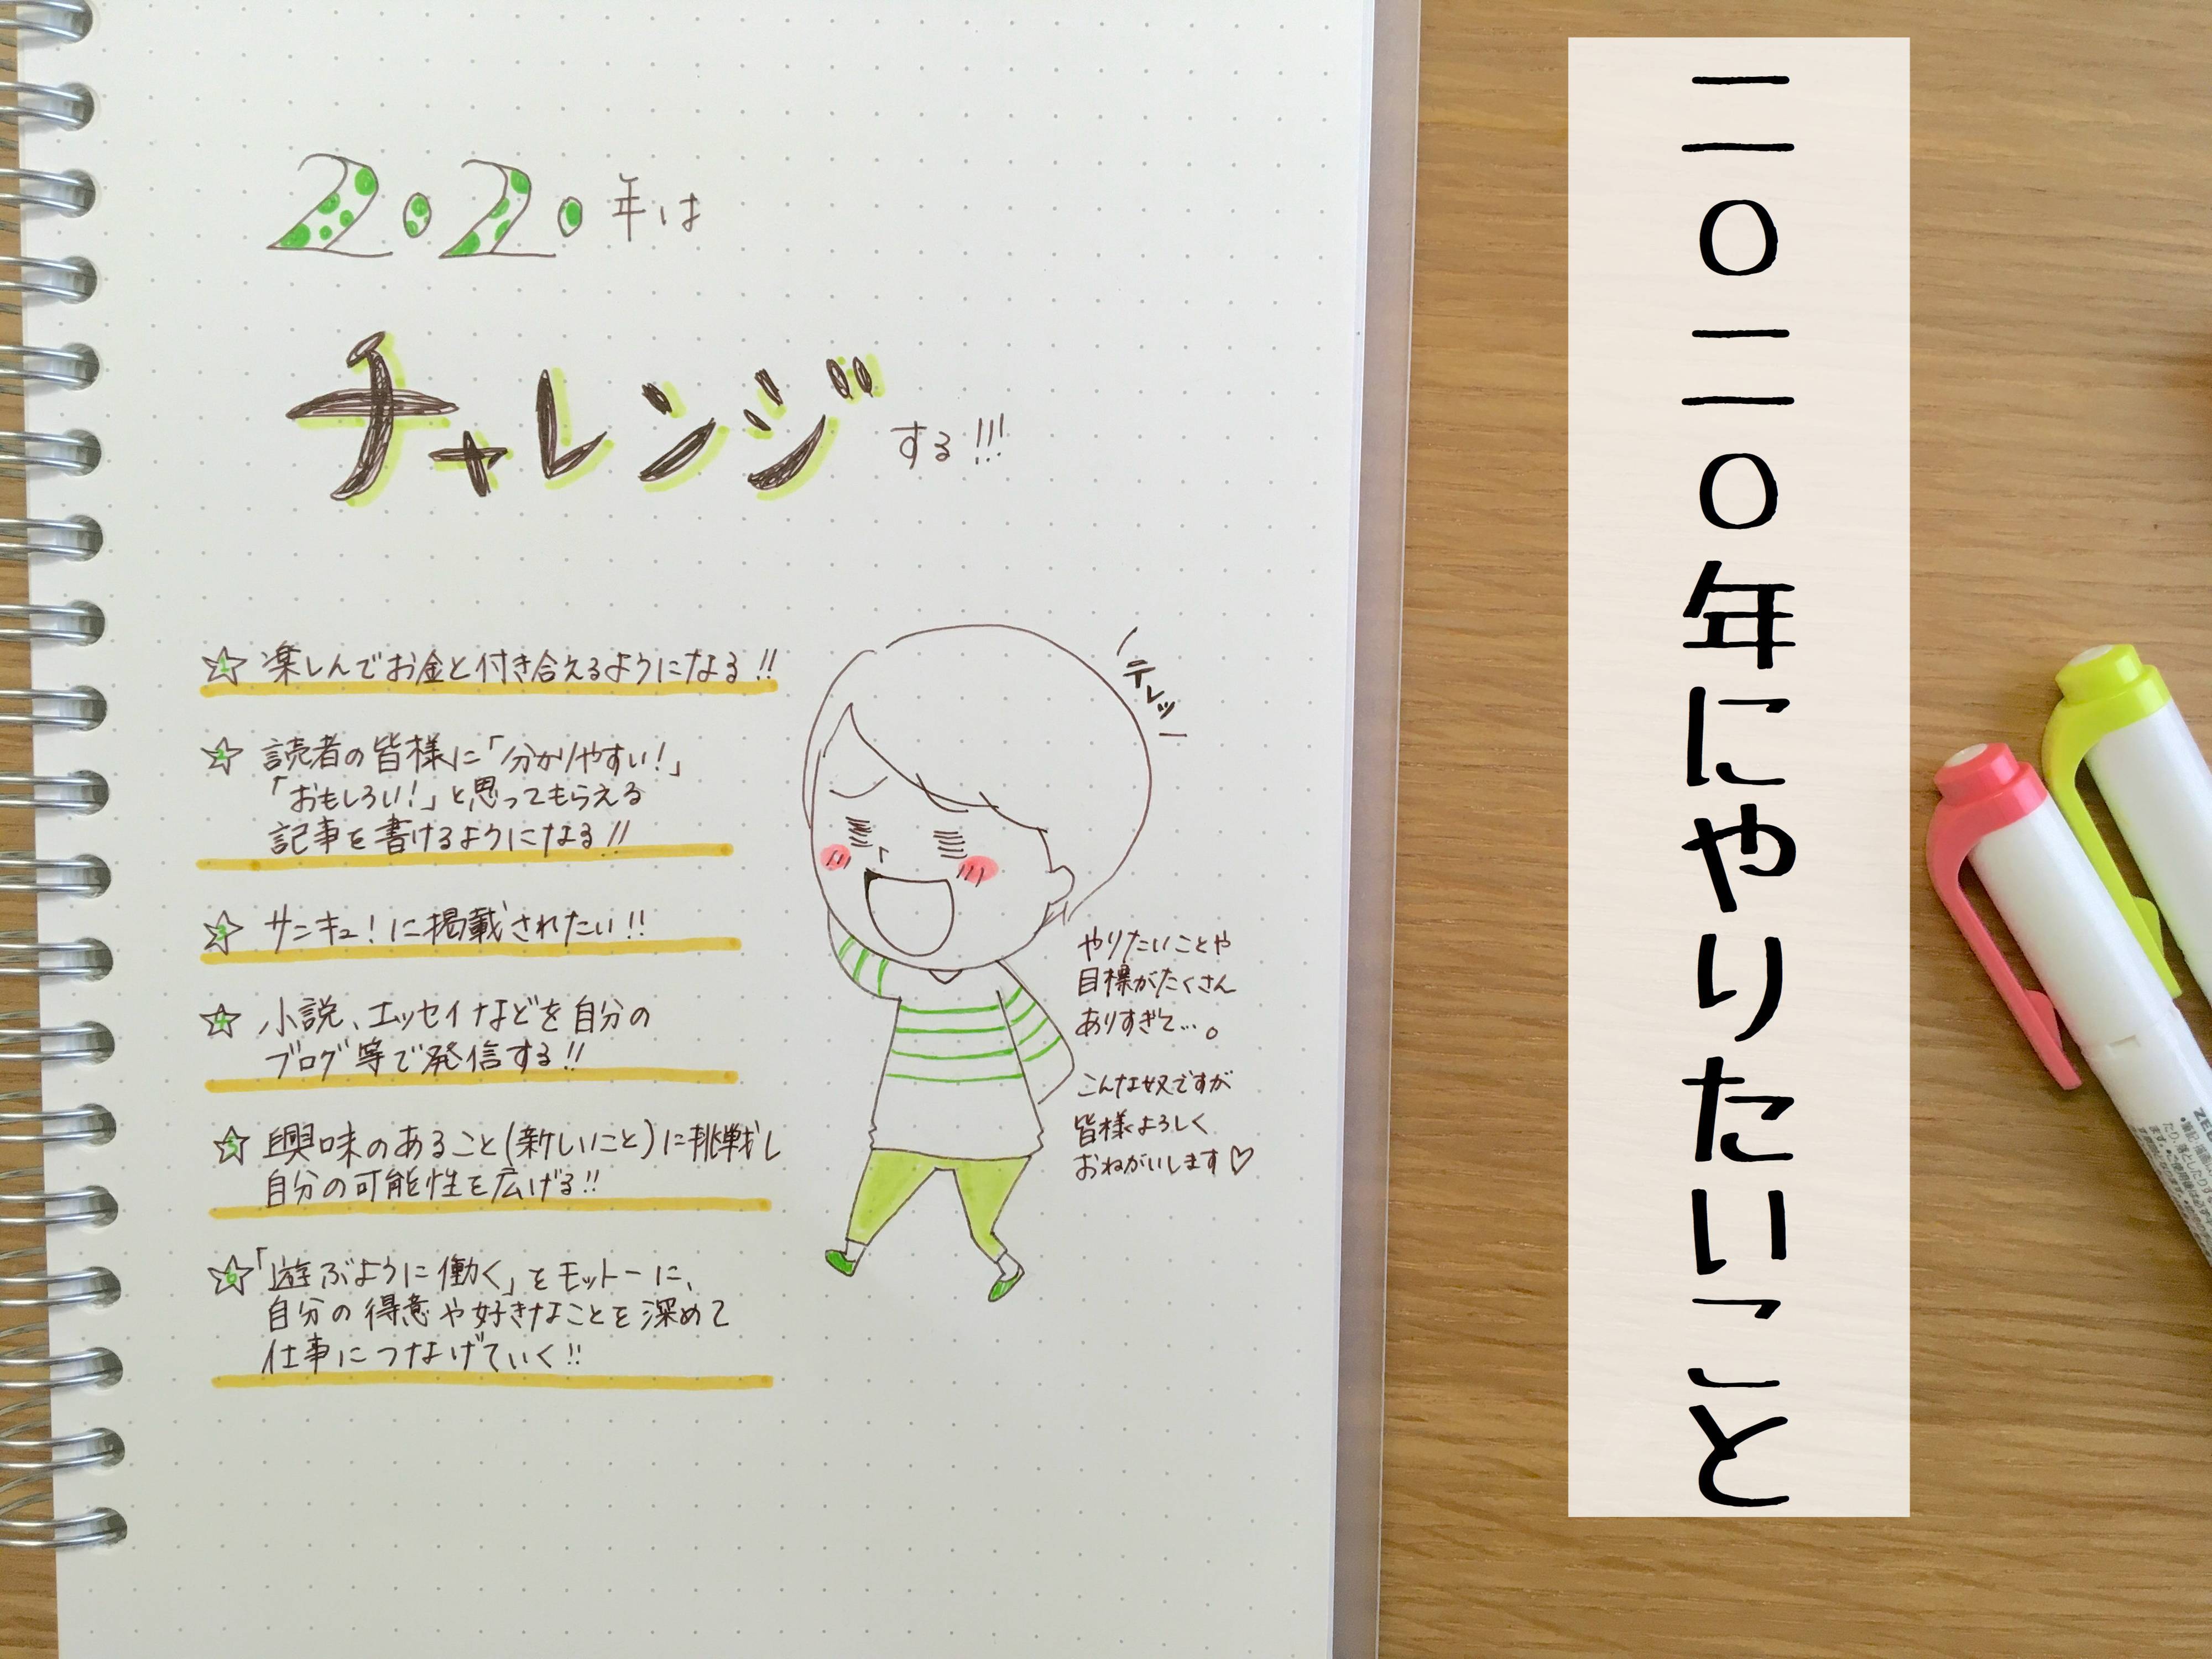 2020年は
チャレンジする!!!
☆1 楽しんでお金と付き合えるようになる!!
☆2 読者の皆様に「分かりやすい!」
「おもしろい!」と思ってもらえる
記事を書けるようになる!!
☆3 サンキュ!に掲載されたい!!
☆4 小説、エッセイなどを自分の
ブログ等で発信する!!
☆5 興味のあること(新しいこと)に挑戦し
自分の可能性を広げる!!
☆6 「遊ぶように働く」をモットーに、
自分の得意や好きなことを深めて
仕事につなげていく!!
テレッ
やりたいことや
目標がたくさん
ありすぎて…。
こんな奴ですが
皆様よろしく
おねがいします♡
二〇二〇年にやりたいこと